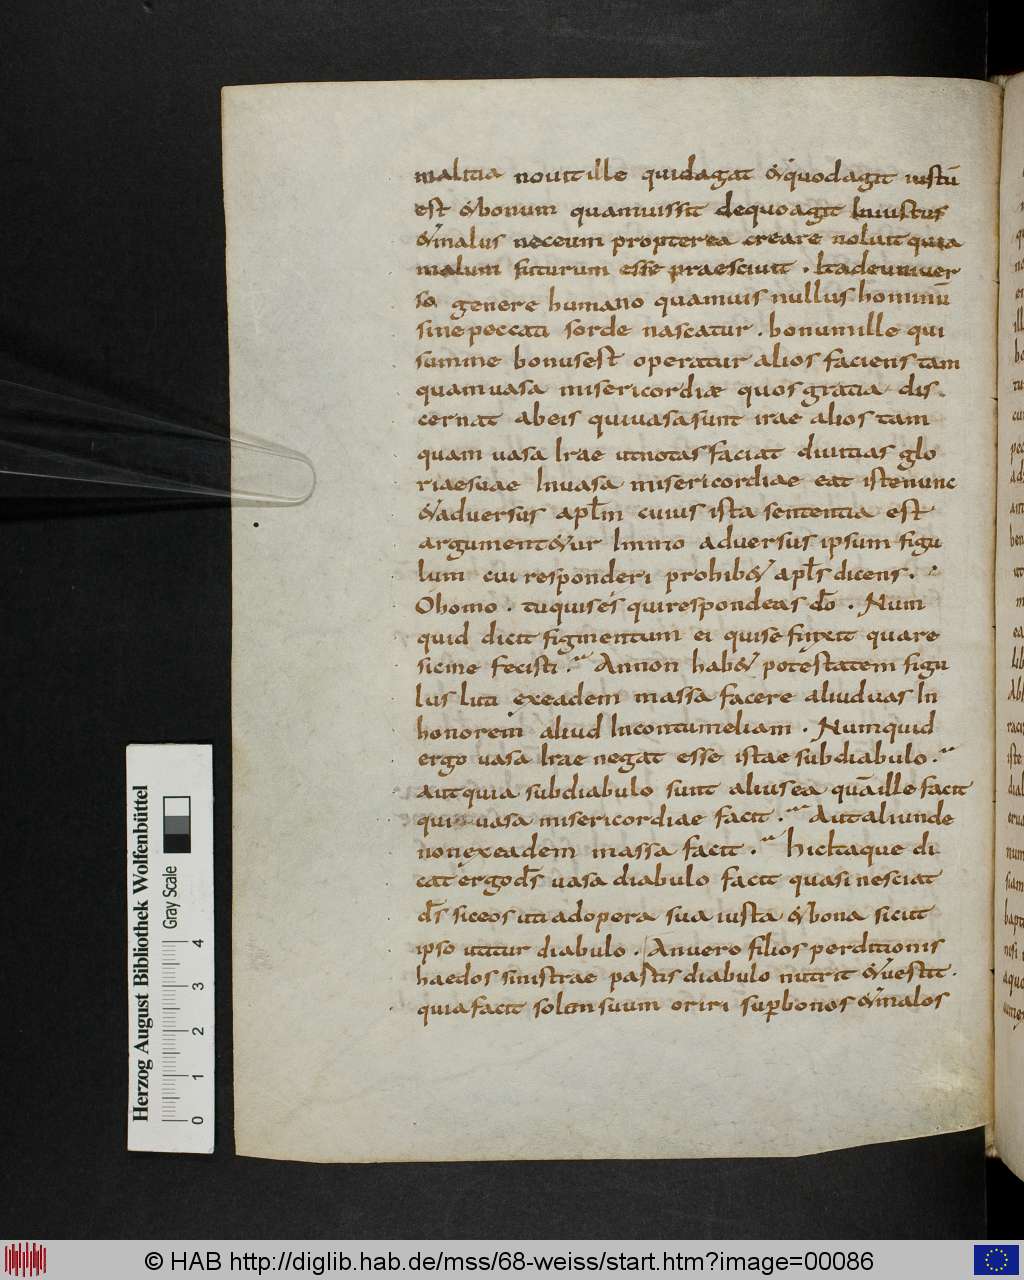 malitia nouit ille quid agat & quod agit iustū
est & bonum quamuis sit de quo agit Iniustus
& malus nec eum propterea creare noluit quia
malum futurum esse praesciuit . Ita de uniuer
so genere humano quamuis nullus hominū
sine peccati sorde nascatur . bonum ille qui
summe bonus est operatur alios faciens tam
quam uasa misericordiæ quos gratia dis
cernat ab eis qui uasa sunt irae alios tam
quam uasa Irae ut notas faciat diuitias glo
riae suae In uasa misericordiae eat iste nunc
& aduersus apłm cuius ista sententia est
argument&ur Immo aduersus ipsum figu
lum cui responderi prohib& apłs dicens .
O homo . tu quis es qui respondeas dō . Num
quid dicit figmentum ei qui se finxit quare
sic me fecisti . Annon hab& potestatem figu
lus luti ex eadem massa facere aliud uas In
honorem aliud In contumeliam . Numquid
ergo uasa Irae negat esse istae sub diabulo .
Aut quia sub diabulo sunt alius ea quā ille facit
qui uasa misericordiae facit . Aut aliunde
non ex eadem massa facit . hic Itaque di
cat ergo ds̄ uasa diabulo facit quasi nesciat
ds̄ sic eos uti ad opera sua iusta & bona sicut
ipso utitur diabulo . An uero filios perditionis
haedos sinistrae pastis diabulo nutrit & uestit .
quia facit solem suum oriri sup bonos & malos
Herzog August Bibliothek Wolfenbüttel
Gray Scale
0 1 2 3 4
© HAB http://diglib.hab.de/mss/68-weiss/start.htm?image=00086